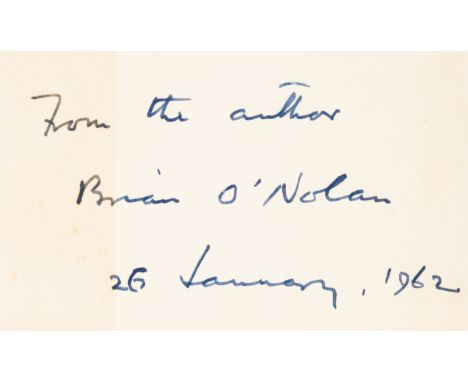 From the author
Brian O'Nolan
26 January, 1962